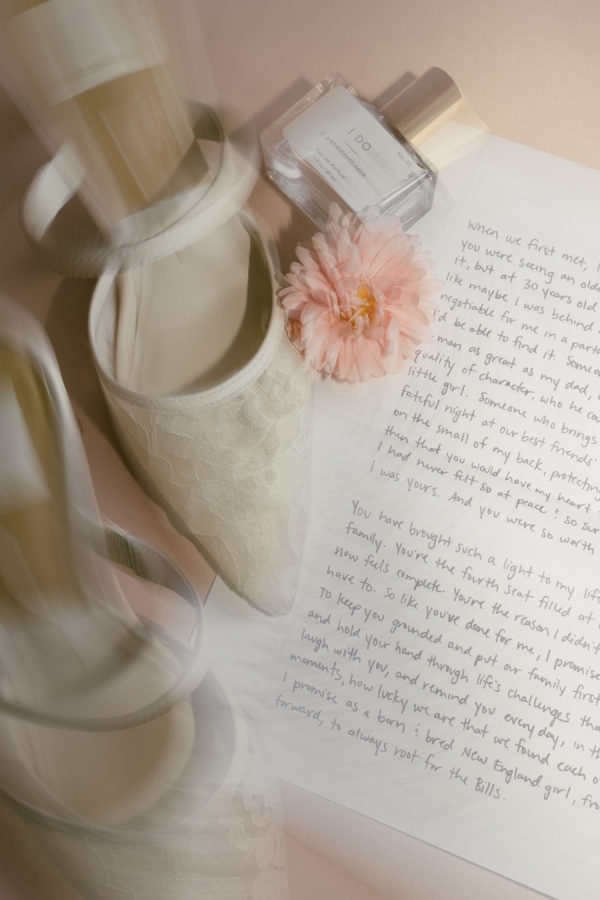 I DO
Eau de Parfum
When we first met, I
you were seeing an olde
it, but at 30 years old
like maybe I was behind
negotiable for me in a part
I'd be able to find it. Someo
man as great as my dad,
quality of character, who he co
little girl. Someone who brings
fateful night at our best friends'
on the small of my back, protectin
then that you would have my heart
I had never felt so at peace & so sur
I was yours. And you were so worth
You have brought such a light to my life
family. You're the fourth seat filled at
now feels complete. You're the reason I didn't
have to. So like you've done for me, I promise
to keep you grounded and put our family first
and hold your hand through life's challenges tha
laugh with you, and remind you every day, in th
moments, how lucky we are that we found each o
I promise as a born & bred New England girl, fro
forward, to always root for the Bills.